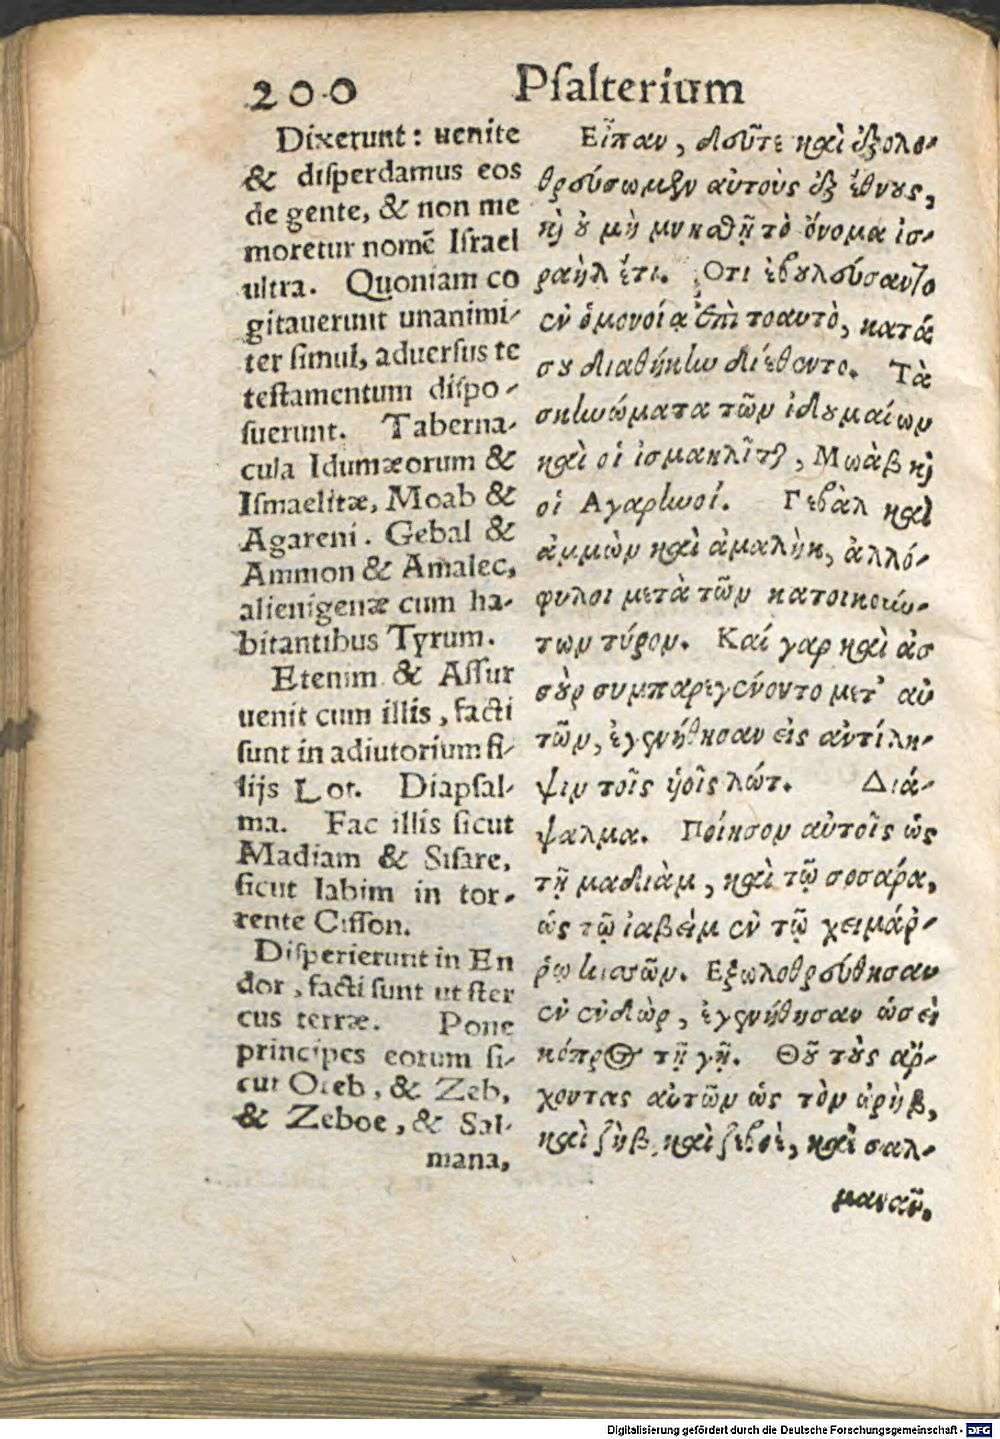 200 Psalterium
Dixerunt: uenite
& disperdamus eos
de gente, & non me
moretur nomẽ Israel
ultra. Quoniam co
gitauerunt unanimi-
ter simul, aduersus te
testamentum dispo-
suerunt. Taberna-
cula Idumæorum &
Ismaelitæ, Moab &
Agareni. Gebal &
Ammon & Amalec,
alienigenæ cum ha-
bitantibus Tyrum.
Etenim & Assur
uenit cum illis, facti
sunt in adiutorium fi-
lijs Lot. Diapsal-
ma. Fac illis sicut
Madiam & Sisare,
sicut Iabim in tor-
rente Cisson.
Disperierunt in En
dor, facti sunt ut ster
cus terræ. Pone
principes eorum si-
cut Oreb, & Zeb,
& Zeboe, & Sal-
mana,
Εἶπαν, δεῦτε καὶ ἐξολο-
θρεύσωμεν αὐτοὺς ἐξ ἔθνους,
καὶ οὐ μὴ μνησθῇ τὸ ὄνομα ἰσ-
ραὴλ ἔτι. Ὅτι ἐβουλεύσαντο
ἐν ὁμονοίᾳ ἐπὶ τοαυτὸ, κατά
σου διαθήκην διέθεντο. Τὰ
σκηνώματα τῶν ἰδουμαίων
καὶ οἱ ἰσμαηλῖται, Μωὰβ καὶ
οἱ Ἀγαρηνοί. Γεβὰλ καὶ
ἀμμὼν καὶ ἀμαλὴκ, ἀλλό-
φυλοι μετὰ τῶν κατοικούν-
των τύρον. Καί γαρ καὶ ἀσ
σοὺρ συμπαρεγένοντο μετ' αὐ
τῶν, ἐγενήθησαν εἰς αντίλη-
ψιν τοῖς ὑιοῖς λώτ. Διά-
ψαλμα. Ποίησον αὐτοῖς ὡς
τῇ μαδιὰμ, καὶ τῷ σοσάρα,
ὡς τῷ ἰαβεὶμ ἐν τῷ χειμάρ-
ρῳ κισσῶν. Εξωλοθρεύθησαν
ἐν ἐνδὼρ, ἐγενήθησαν ὡσεὶ
κόπρος τῇ γῇ. Θοῦ τοὺς ἄρ-
χοντας αὐτῶν ὡς τὸν ὠρὴβ,
καὶ ζὴβ, καὶ ζεβεὲ, καὶ σαλ-
μαναῦ.
Digitalisierung gefördert durch die Deutsche Forschungsgemeinschaft - DFG